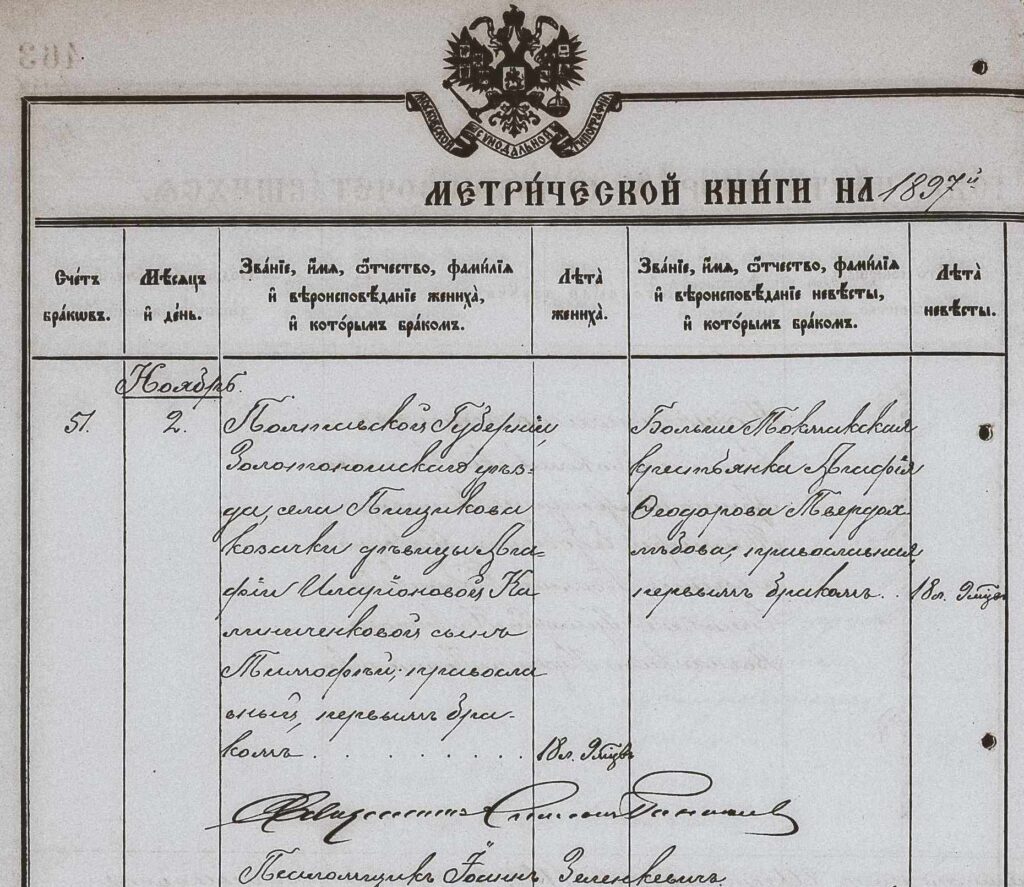 МОСКОВСКОЙ СѴНОДАЛЬНОЙ ТИПОГРАФІИ
МЕТРИ́ЧЕСКОЙ КНИ́ГИ НА 1897й
Сче́тъ
бра́кѡвъ.
Мѣ́сяцъ
и҆ де́нь.
Зва́нїе, и҆́мя, ѻ҆́тчество, фами́лїя
и҆ вѣроисповѣ́данїе жениха̀,
и҆ кото́рымъ бра́комъ.
Лѣ́та
жениха̀.
Зва́нїе, и҆́мя, ѻ҆́тчество, фами́лїя
и҆ вѣроисповѣ́данїе невѣ́сты,
и҆ кото́рымъ бра́комъ.
Лѣ́та
невѣ́сты.
Ноябрь.
51.
2.
Полтавской Губерніи
Золотоношскаго уѣз-
да, села Пищикова
козачки дѣвицы Ага-
фіи Иларіоновой Ка-
линиченковой сынъ
Тимофѣй, православ-
ный, первымъ бра-
комъ
18 л. 9 мцвъ
Больше Токмакская
крестьянка Агафія
Ѳеодорова Твердох-
лѣбова, православная,
первымъ бракомъ
18 л. 9 мцвъ
Псаломщикъ Іоаннъ Зеленкевичъ